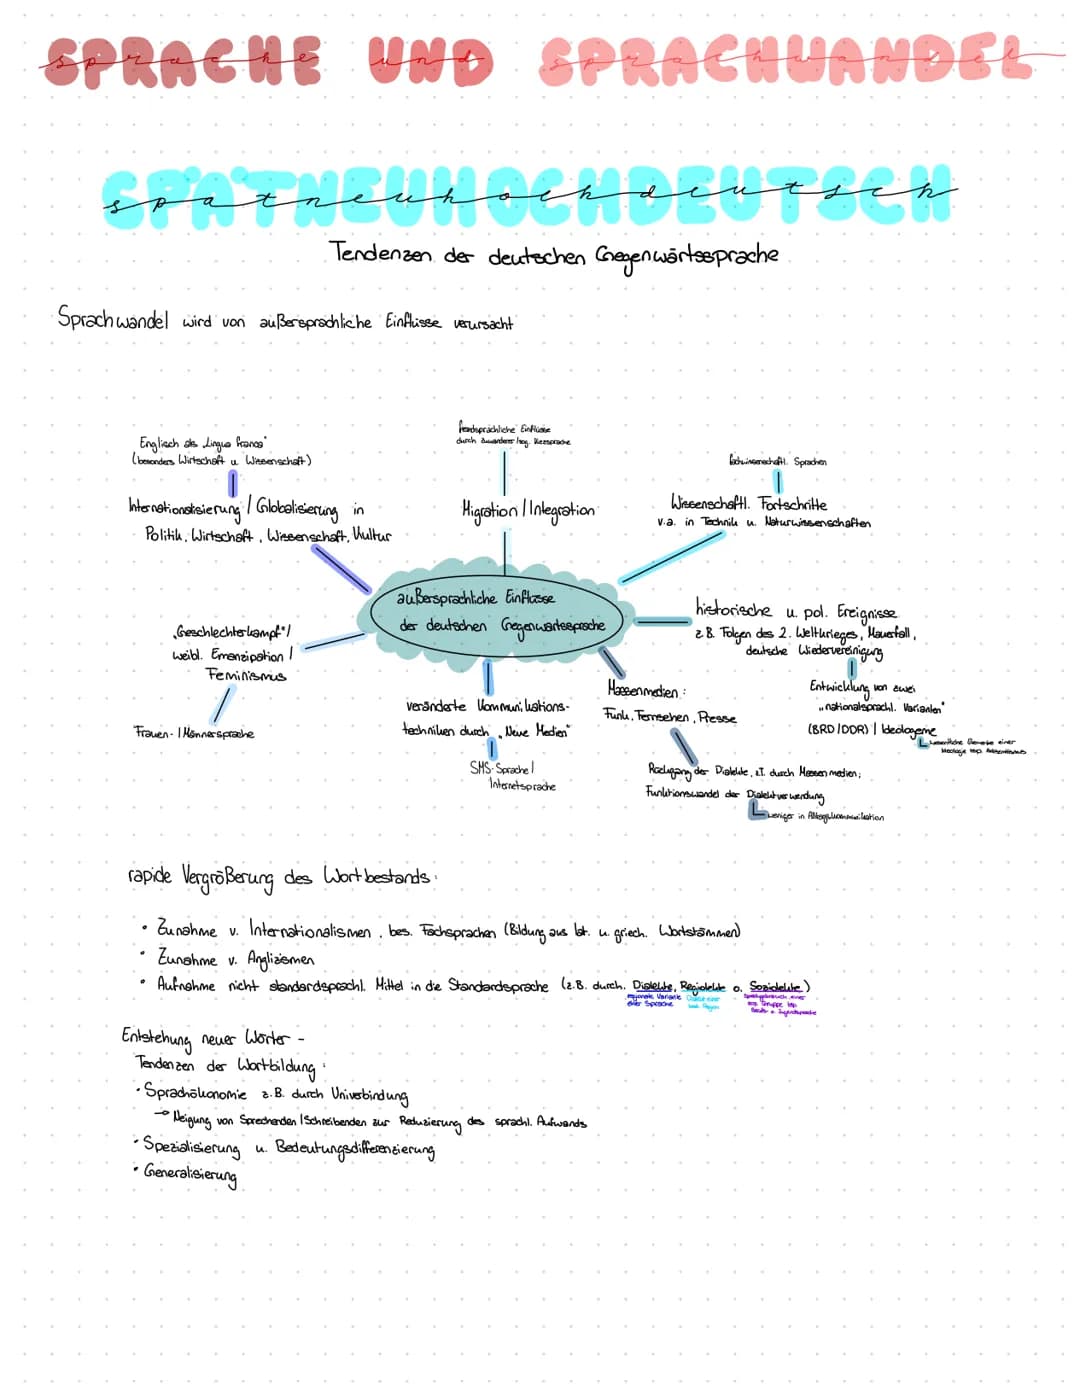 SPRACHE UND SPRACHWANDEL
SPÄTNEUHOCHDEUTSCH
Tendenzen der deutschen Gegenwärtssprache
Sprachwandel wird von außersprachliche Einflüsse verursacht
fremdsprachliche Einflüsse
durch Zuwanderer /sog. Kiezsprache
Englisch als „Lingua franca"
(besonders Wirtschaft u. Wissenschaft)
fachwissenschaftl. Sprachen
Internationalisierung / Globalisierung in
Politik, Wirtschaft, Wissenschaft, Kultur
Migration / Integration
Wissenschaftl. Fortschritte
v.a. in Technik u. Naturwissenschaften
außersprachliche Einflüsse
der deutschen Gegenwartssprache
historische u. pol. Ereignisse
z.B. Folgen des 2. Weltkrieges, Mauerfall,
deutsche Wiedervereinigung
„Geschlechterkampf"/
weibl. Emanzipation /
Feminismus
Entwicklung von zwei
„nationalsprachl. Varianten"
(BRD/DDR) / Ideologeme
wesentliche Elemente einer
Ideologie
Frauen- / Männersprache
veränderte Kommunikations-
techniken durch „Neue Medien"
SMS-Sprache /
Internetsprache
Massenmedien:
Funk, Fernsehen, Presse
Rückgang der Dialekte, z.T. durch Massenmedien;
Funktionswandel der Dialektverwendung
weniger in Alltagskommunikation
rapide Vergrößerung des Wortbestands:
• Zunahme v. Internationalismen, bes. Fachsprachen (Bildung aus lat. u. griech. Wortstämmen)
• Zunahme v. Anglizismen
• Aufnahme nicht standardsprachl. Mittel in die Standardsprache (z.B. durch. Dialekte, Regiolekte o. Soziolekte)
regionale Variante
einer Sprache
Dialekt einer
best. Region
Sprachgebrauch einer
soz. Gruppe bsp.
Berufs- o. Jugendsprache
Entstehung neuer Wörter -
Tendenzen der Wortbildung:
• Sprachökonomie z.B. durch Univerbindung
→ Neigung von Sprechenden /Schreibenden zur Reduzierung des sprachl. Aufwands
• Spezialisierung u. Bedeutungsdifferenzierung
• Generalisierung